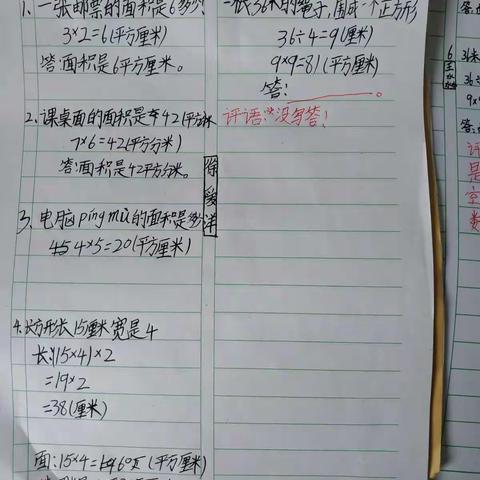 1、一张邮票的面积是6多少
3×2=6(平方厘米)
答:面积是6平方厘米。
2、课桌面的面积是42(平方分米
7×6=42(平方分米)
答:面积是42平方分米。
3、电脑pingmu的面积是多少
4×5=20(平方厘米)
4、长方形长15厘米宽是4
长:(15×4)×2
=19×2
=38(厘米)
面:15×4=60(平方厘米)
一张36米的绳子,围成一个正方形
36÷4=9(厘米)
9×9=81(平方厘米)
答:。
评语:没写答!
徐爱洋
36米
36÷
9×
答:
评
是
数